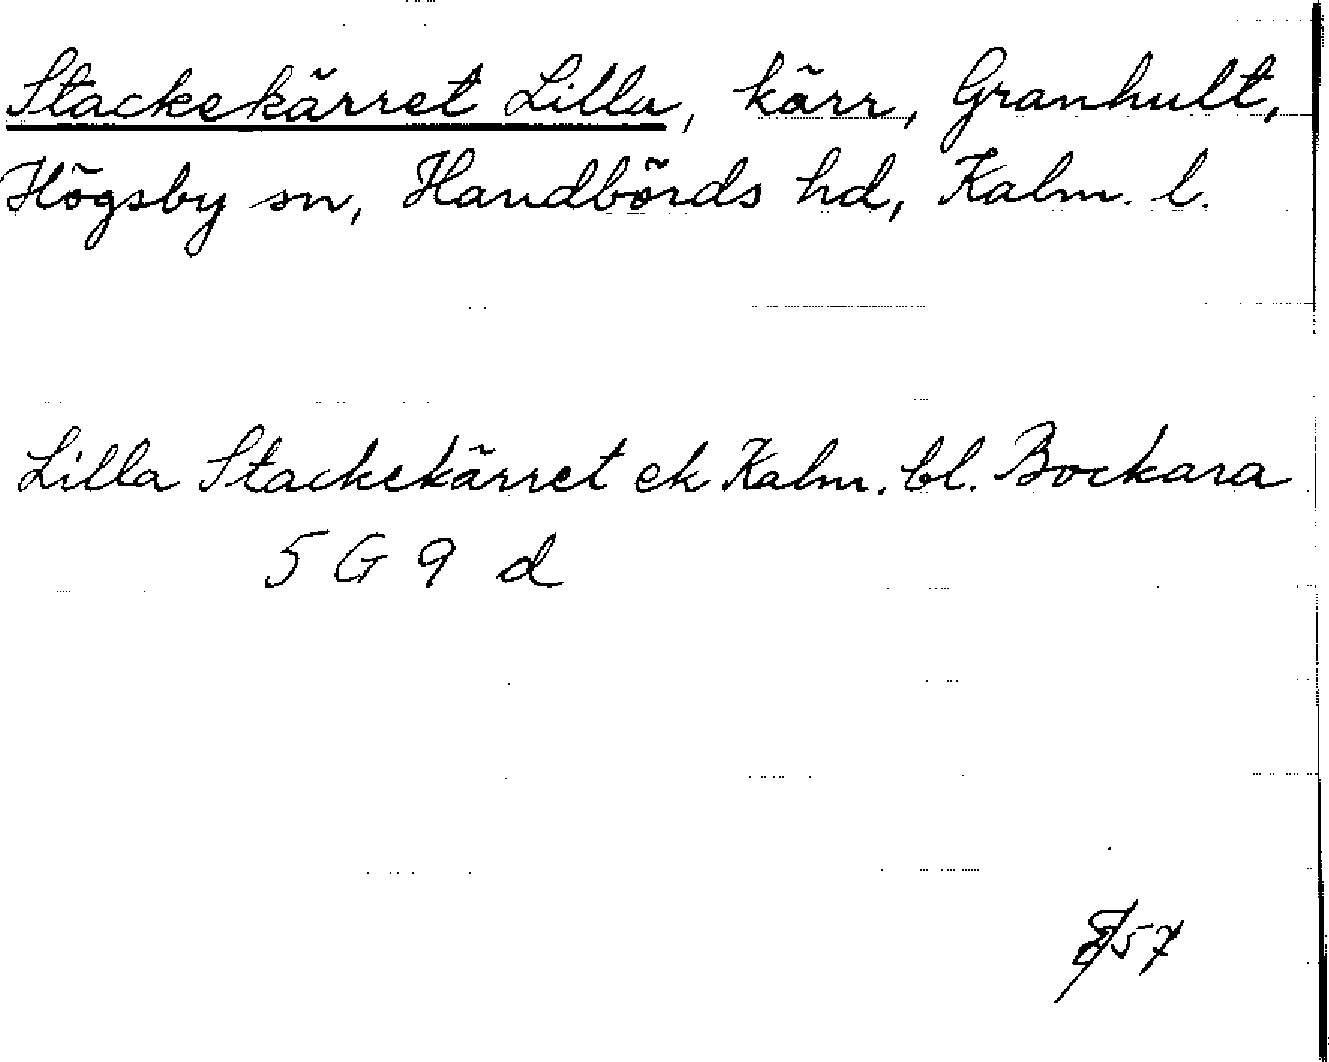 Stackekärret Lilla, kärr, Granhult,
Högsby sn, Handbörds hd, Kalm. l.
Lilla Stackekärret ek Kalm. bl. Bockara
5 G 9 d
57